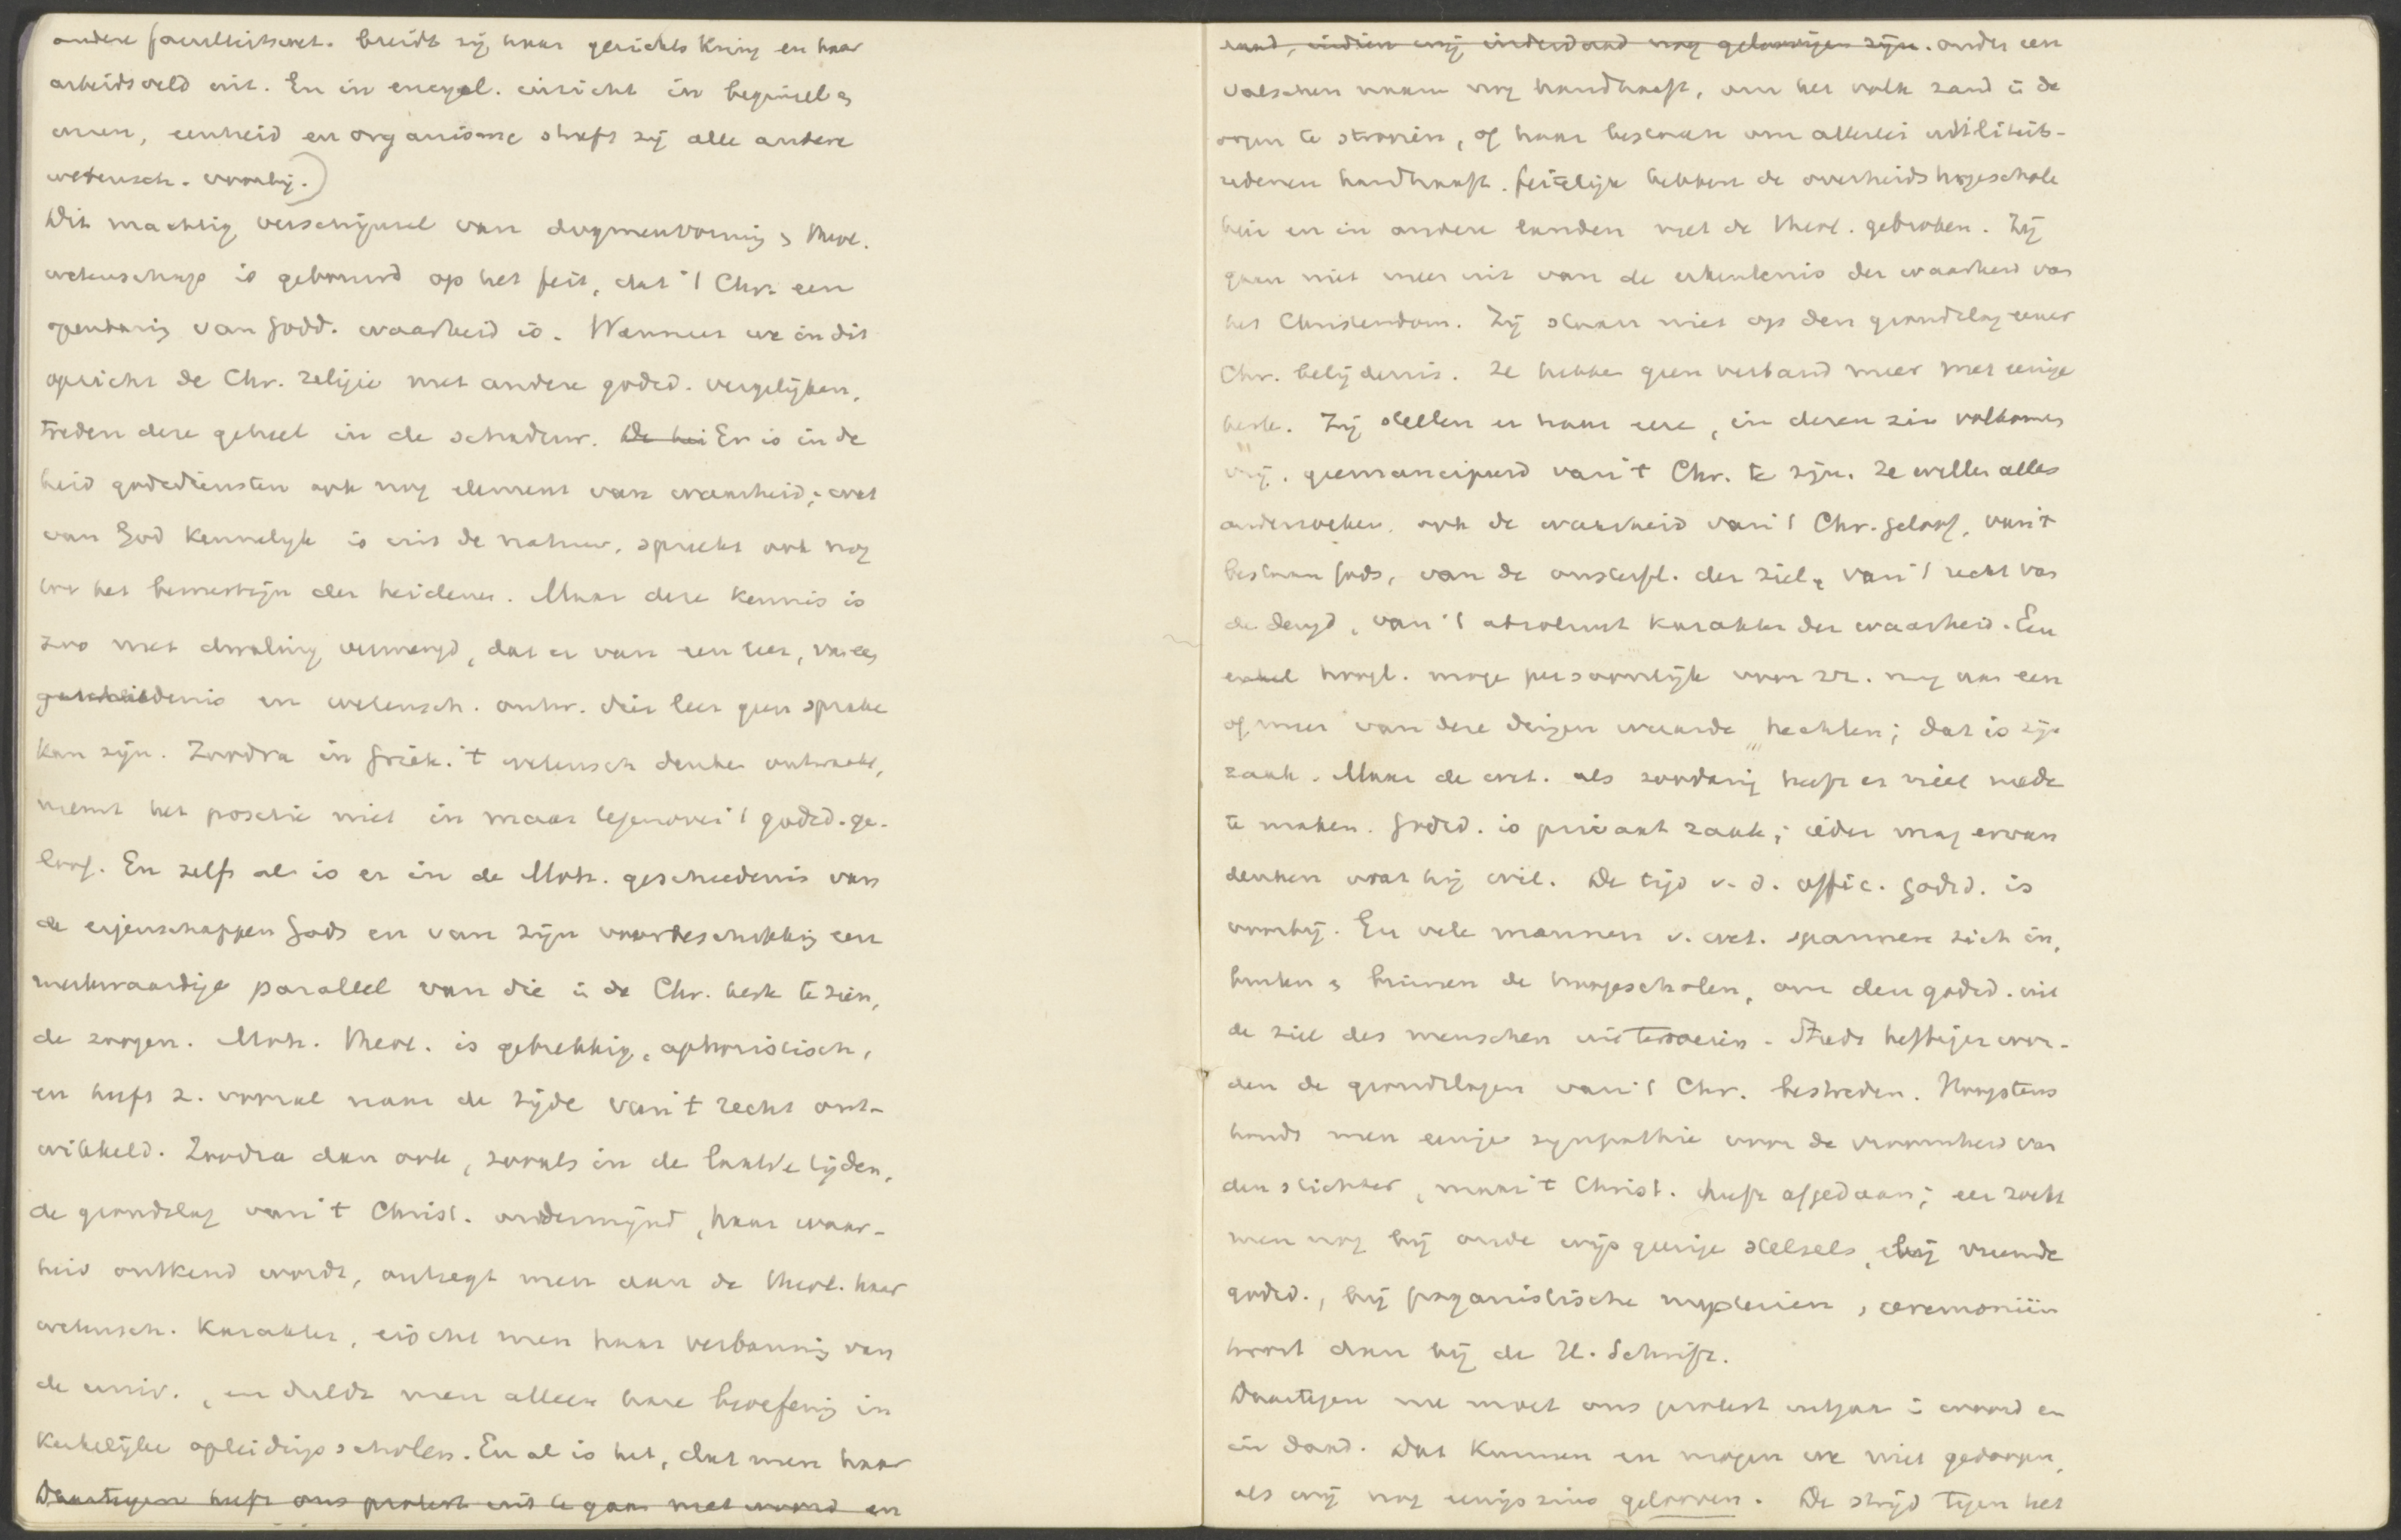 andere faculteitswet. breidt zij haar gezichts kring en haar
arbeidsveld uit. En in encycl. inricht in beginsel &
even, eenheid en organisme streft zij alle andere
wetensch. voorbij.)
Dit machtig verschijnsel van dogmenvorming & theol.
wetenschap is gebouwd op het feit, dat 't Chr. een
openbaring van Godd. waarheid is. Wanneer we in dit
opzicht de Chr. religie met andere godsd. vergelijken,
treden deze geheel in de schaduw. De hei Er is in de
heid. godsdiensten ook nog element van waarheid; wat
van God kennelijk is uit de natuur, spreekt ook nog
tot het bewustzijn der heidenen. Maar deze kennis is
zoo met dwaling vermengd, dat er van een leer, van een
geschiedenis en wetensch. ontw. dier leer geen sprake
kan zijn. Zoodra in Griek. 't wetensch denken ontwaakt,
neemt het positie niet in maar tegenover 't godsd. ge-
loof. En zelfs al is er in de Moh. geschiedenis van
de eigenschappen Gods en van zijn voorbeschikking een
merkwaardige parallel van die in de Chr. kerk te zien,
de zoogen. Moh. theol. is gebrekkig, aphoristisch,
en heeft z. vooral naar de zijde van 't recht ont-
wikkeld. Zoodra dan ook, zooals in de laatste tijden,
de grondslag van 't Christ. ondermijnd, haar waar-
heid ontkend wordt, ontzegt men aan de theol. haar
wetensch. karakter, eischt men haar verbanning van
de univ., en duldt men alleen hare beoefening in
kerkelijke opleidings scholen. En al is het, dat men haar
Daartegen heeft ons protest uit te gaan met woord en
daad, indien wij inderdaad nog geloovigen zijn. onder een
valschen naam nog handhaaft, om het volk zand in de
oogen te strooien, of haar bestaan om allerlei utiliteits-
redenen handhaaft. feitelijk hebben de overheids hogeschole
hier en in andere landen met de theol. gebroken. Zij
gaan niet meer uit van de erkentenis der waarheid van
het Christendom. Zij staan niet op den grondslag eener
Chr. belijdenis. Ze hebben geen verband meer met eenige
kerk. Zij stellen er haar eere in, in dezen zin volkomen
vrij, geemancipeerd van 't Chr. te zijn. Ze willen alles
onderzoeken, ook de waarheid van 't Chr. geloof, van 't
bestaan Gods, van de onsterfl. der ziel, van 't recht van
de deugd, van 't absoluut karakter der waarheid. Een
enkel hoogl. moge persoonlijk voor zr. nog aan een
of meer van deze dingen waarde hechten; dat is zijn
zaak. Maar de wet. als zoodanig heeft er niets mede
te maken. Godsd. is privaat zaak; ieder mag ervan
denken wat hij wil. De tijd v. d. offic. godsd. is
voorbij. En vele mannen v. wet. spannen zich in,
buiten & binnen de hoogescholen, om den godsd. uit
de ziel des menschen uit te roeien. Steeds heftiger wor-
den de grondslagen van 't Chr. bestreden. Hoogstens
houdt men eenige sympathie voor de vroomheid van
den stichter, maar 't Christ. heeft afgedaan; eer zoekt
men nog bij oude wijsgeerige stelsels, bij vreemde
godsd., bij paganistische mysterien, ceremoniën
troost dan bij de H. Schrift.
Daartegen nu moet ons protest uitgaan in woord en
in daad. Dat kunnen en mogen we niet gedoogen,
als wij nog eenigszins gelooven. De strijd tegen het